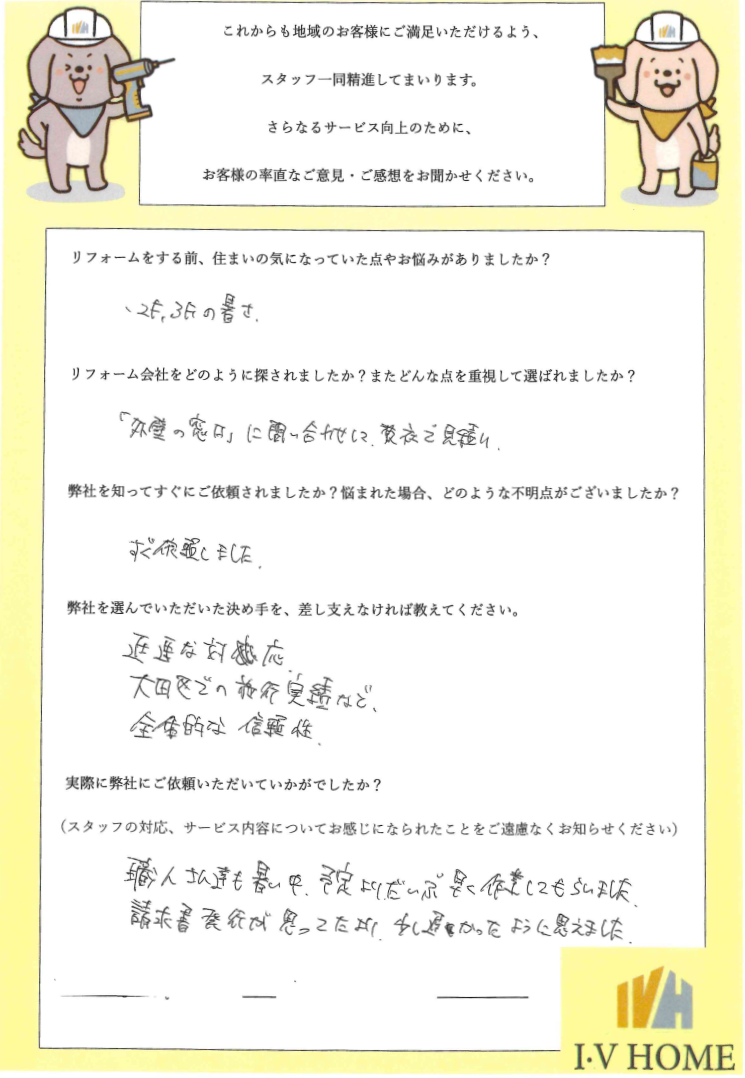 これからも地域のお客様にご満足いただけるよう、
スタッフ一同精進してまいります。
さらなるサービス向上のために、
お客様の率直なご意見・ご感想をお聞かせください。
リフォームをする前、住まいの気になっていた点やお悩みがありましたか？
、2F,3Fの暑さ.
リフォーム会社をどのように探されましたか？またどんな点を重視して選ばれましたか？
「外壁の窓口」に問い合わせして、で見積り.
弊社を知ってすぐにご依頼されましたか？悩まれた場合、どのような不明点がございましたか？
すぐ依頼しました.
弊社を選んでいただいた決め手を、差し支えなければ教えてください。
迅速な対応.
大田区での施行実績など、
全体的な信頼性.
実際に弊社にご依頼いただいていかがでしたか？
（スタッフの対応、サービス内容についてお感じになられたことをご遠慮なくお知らせください）
職人さん達も暑い中、予定よりだいぶ早く作業してもらいました.
請求書発行が思ってたより、少し遅かったように思えました.
IVH
I・V HOME